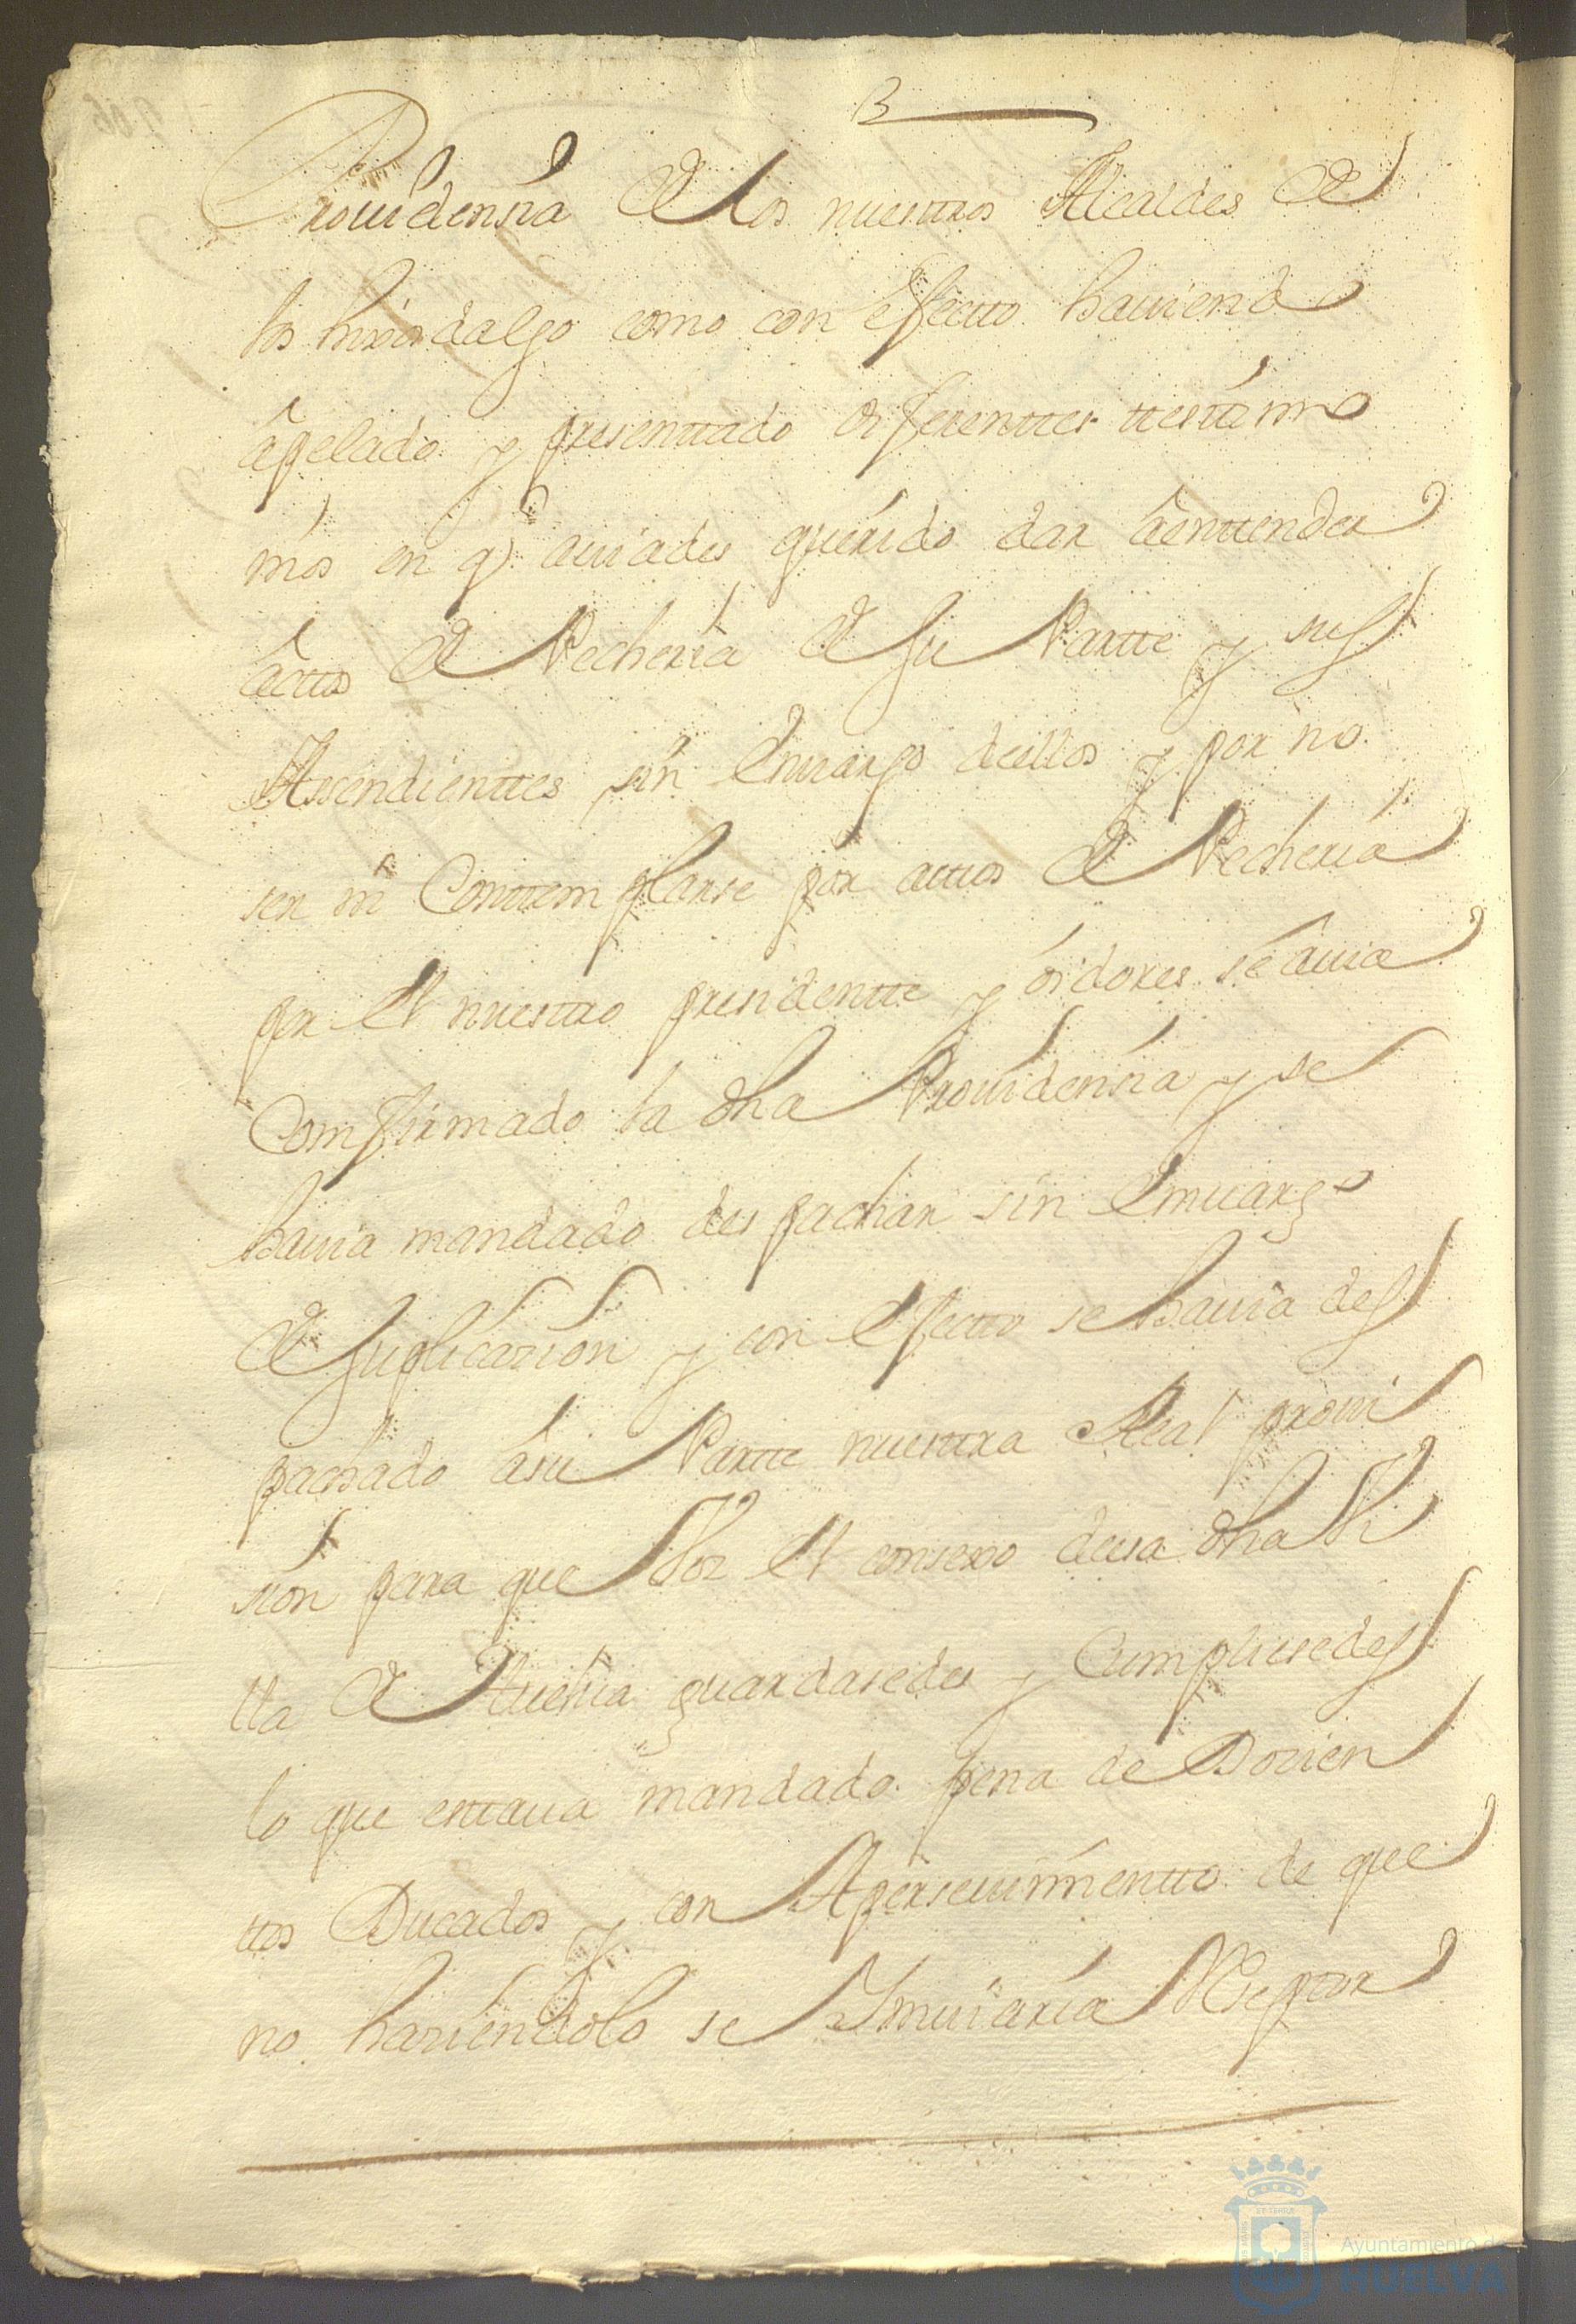 Prouidensia de los nuestros Alcaldes de
los hixosdalgo como con efecto hauiendo
âpelado y presenttado diferenttes testtimo
nios en q̃ auiades querido dar âenttender
âctos de Pecheria de su Partte y sus
Assendienttes sin Embargo deellos y por no
ser ni Conttemplarse por actos de Pecheria
por el nuestro presidentte y oidores se âuia
Comfirmado la dha Prouidensia y se
hauia mandado despachar sin Embargo
de suplicazion y con Efecto se hauia des
pachado âsu Partte nuestra Real proui
sion para que Por el consexo deesa dha Vi
lla de Huelua guardasedes y Cumpliesedes
lo que esttaua mandado pena de Dozien
tos Ducados y con Apersevimientto de que
no haziendolo se Imuiaria Rezeptor
Ayuntamiento de
HUELVA